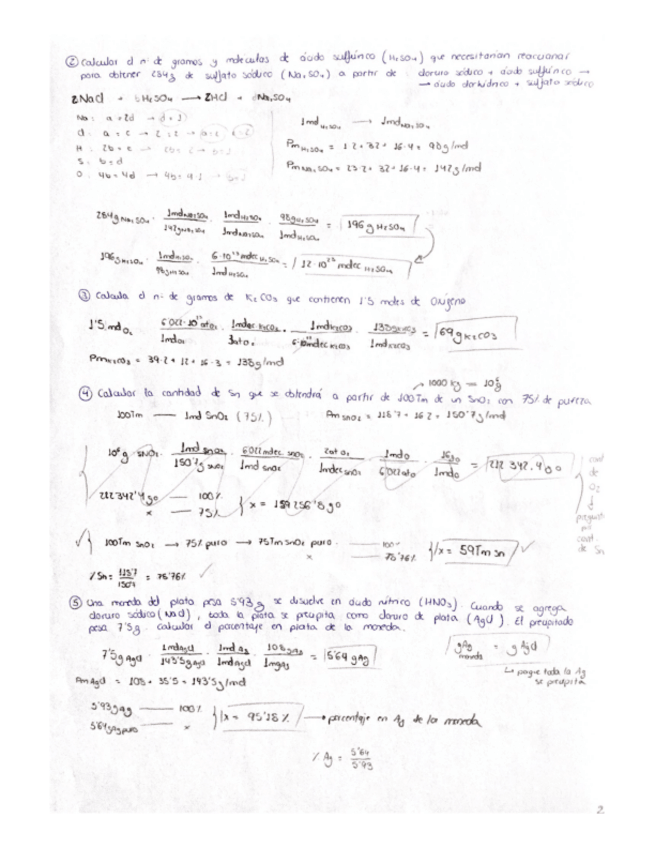 ② Calcular el nº de gramos y moléculas de ácido sulfúrico (H₂SO₄) que necesitarían reaccionar
para obtener 284g de sulfato sódico (Na₂SO₄) a partir de : cloruro sódico + ácido sulfúrico →
→ ácido clorhídrico + sulfato sódico
2NaCl + H₂SO₄ → 2HCl + Na₂SO₄
Na: a = 2d → d = 1
Cl: a = c → 2 = 2 →
H: 2b = c →
S: b = d
O: 4b = 4d →
1mol H₂SO₄ → 1mol Na₂SO₄
Pm H₂SO₄ = 1·2 + 32 + 16·4 = 98g/mol
Pm Na₂SO₄ = 23·2 + 32 + 16·4 = 142g/mol
284g Na₂SO₄ · 1mol Na₂SO₄ / 142g Na₂SO₄ · 1mol H₂SO₄ / 1mol Na₂SO₄ · 98g H₂SO₄ / 1mol H₂SO₄ = 196g H₂SO₄
196g H₂SO₄ · 1mol H₂SO₄ / 98g H₂SO₄ · 6·10²³ molec H₂SO₄ / 1mol H₂SO₄ = 12·10²³ molec H₂SO₄
③ Calcula el nº de gramos de K₂CO₃ que contienen 1'5 moles de Oxígeno
1'5 mol O₂ · 6'022·10²³ at O₂ / 1mol O₂ · 1molec K₂CO₃ / 3at O₂ · 1mol K₂CO₃ / molec K₂CO₃ · 138g K₂CO₃ / 1mol K₂CO₃ = 69g K₂CO₃
Pm K₂CO₃ = 39·2 + 12 + 16·3 = 138g/mol
→ 1000 kg = 10⁶g
④ Calcular la cantidad de Sn que se obtendrá a partir de 100Tm de un SnO₂ con 75% de pureza
100Tm — 1mol SnO₂ (75%)
Pm SnO₂ = 118'7 + 16·2 = 150'7g/mol
10⁶g SnO₂ · 1mol SnO₂ / 150'7g SnO₂ · 6022 molec SnO₂ / 1mol SnO₂ · 2at O₂ / 1molec SnO₂ · 1mol O / 6022at O · 16g O / 1mol O = 212 342'4g O
cant de O₂
pregunta por cant. de Sn
212 342'4g O — 100%
x — 75%
x = 159 256'8g O
√ 100Tm SnO₂ → 75% puro → 75Tm SnO₂ puro — 100%
x — 78'76%
x = 59Tm Sn ✓
% Sn = 118'7 / 150'7 = 78'76% ✓
⑤ Una moneda del plata pesa 5'93g se disuelve en ácido nítrico (HNO₃). Cuando se agrega
cloruro sódico (NaCl), toda la plata se precipita como cloruro de plata (AgCl). El precipitado
pesa 7'5g. calcular el porcentaje en plata de la moneda.
7'5g AgCl · 1mol AgCl / 143'5g AgCl · 1mol Ag / 1mol AgCl · 108g Ag / 1mol Ag = 5'64 g Ag
gAg moneda = g AgCl
↳ porque toda la Ag
se precipita
Pm AgCl = 108 + 35'5 = 143'5g/mol
5'93g Ag — 100%
5'64g Ag puro — x
x = 95'18% → porcentaje en Ag de la moneda
% Ag = 5'64 / 5'93
2.